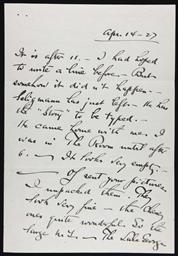 Apr. 14 - 27
It is after 11. — I had hoped
to write a line before — But
somehow it didn't happen —
Seligmann has just left — He has
the "Story" to be typed. —
He came home with me. I
was in The Room until after
6. — It looks very empty. —
— of sent your pictures
I unpacked them. They
look very fine — the
ones quite wonderful. So the
large — The Lake George